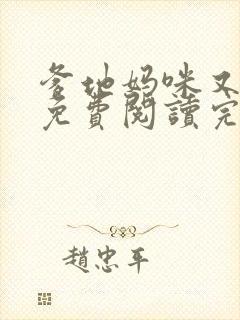 爹地妈咪又
免費閱讀完
趙忠平